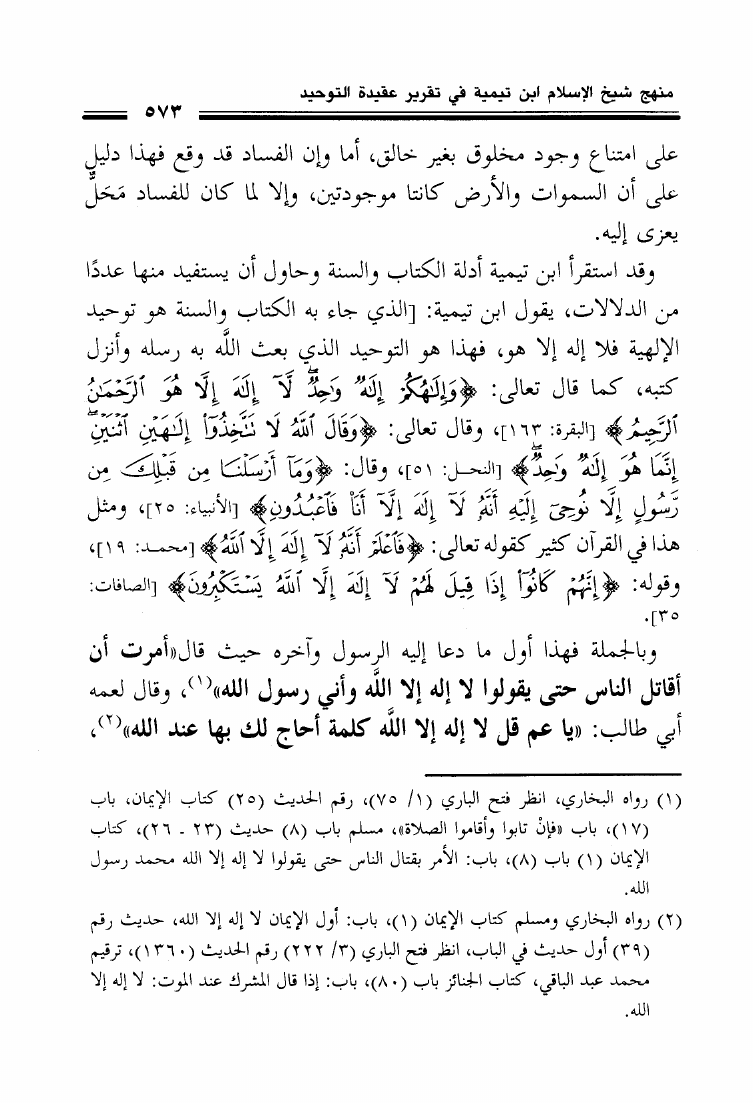 منهج شيخ الإسلام ابن تيمية في تقرير عقيدة التوحيد
٥٧٣
على امتناع وجود مخلوق بغير خالق، أما وإن الفساد قد وقع فهذا دليل
على أن السموات والأرض كانتا موجودتين، وإلا لما كان للفساد مَحَلٌّ
يعزى إليه.
وقد استقرأ ابن تيمية أدلة الكتاب والسنة وحاول أن يستفيد منها عددًا
من الدلالات، يقول ابن تيمية: [الذي جاء به الكتاب والسنة هو توحيد
الإلهية فلا إله إلا هو، فهذا هو التوحيد الذي بعث اللَّه به رسله وأنزل
كتبه، كما قال تعالى: ﴿وَإِلَٰهُكُمْ إِلَٰهٌ وَٰحِدٌۖ لَّآ إِلَٰهَ إِلَّا هُوَ ٱلرَّحْمَٰنُ
ٱلرَّحِيمُ﴾ [البقرة: ١٦٣]، وقال تعالى: ﴿وَقَالَ ٱللَّهُ لَا تَتَّخِذُوٓاْ إِلَٰهَيْنِ ٱثْنَيْنِۖ
إِنَّمَا هُوَ إِلَٰهٌ وَٰحِدٌۖ﴾ [النحل: ٥١]، وقال: ﴿وَمَآ أَرْسَلْنَا مِن قَبْلِكَ مِن
رَّسُولٍ إِلَّا نُوحِىٓ إِلَيْهِ أَنَّهُۥ لَآ إِلَٰهَ إِلَّآ أَنَا۠ فَٱعْبُدُونِ﴾ [الأنبياء: ٢٥]، ومثل
هذا في القرآن كثير كقوله تعالى: ﴿فَٱعْلَمْ أَنَّهُۥ لَآ إِلَٰهَ إِلَّا ٱللَّهُ﴾ [محمد: ١٩]،
وقوله: ﴿إِنَّهُمْ كَانُوٓاْ إِذَا قِيلَ لَهُمْ لَآ إِلَٰهَ إِلَّا ٱللَّهُ يَسْتَكْبِرُونَ﴾ [الصافات:
٣٥].
وبالجملة فهذا أول ما دعا إليه الرسول وآخره حيث قال«أمرت أن
أقاتل الناس حتى يقولوا لا إله إلا اللَّه وأني رسول الله»(١)، وقال لعمه
أبي طالب: «يا عم قل لا إله إلا اللَّه كلمة أحاج لك بها عند الله»(٢)،
(١) رواه البخاري، انظر فتح الباري (١/ ٧٥)، رقم الحديث (٢٥) كتاب الإيمان، باب
(١٧)، باب «فإنْ تابوا وأقاموا الصلاة»، مسلم باب (٨) حديث (٢٣ ـ ٢٦)، كتاب
الإيمان (١) باب (٨)، باب: الأمر بقتال الناس حتى يقولوا لا إله إلا الله محمد رسول
الله.
(٢) رواه البخاري ومسلم كتاب الإيمان (١)، باب: أول الإيمان لا إله إلا الله، حديث رقم
(٣٩) أول حديث في الباب، انظر فتح الباري (٣/ ٢٢٢) رقم الحديث (١٣٦٠)، ترقيم
محمد عبد الباقي، كتاب الجنائز باب (٨٠)، باب: إذا قال المشرك عند الموت: لا إله إلا
الله.